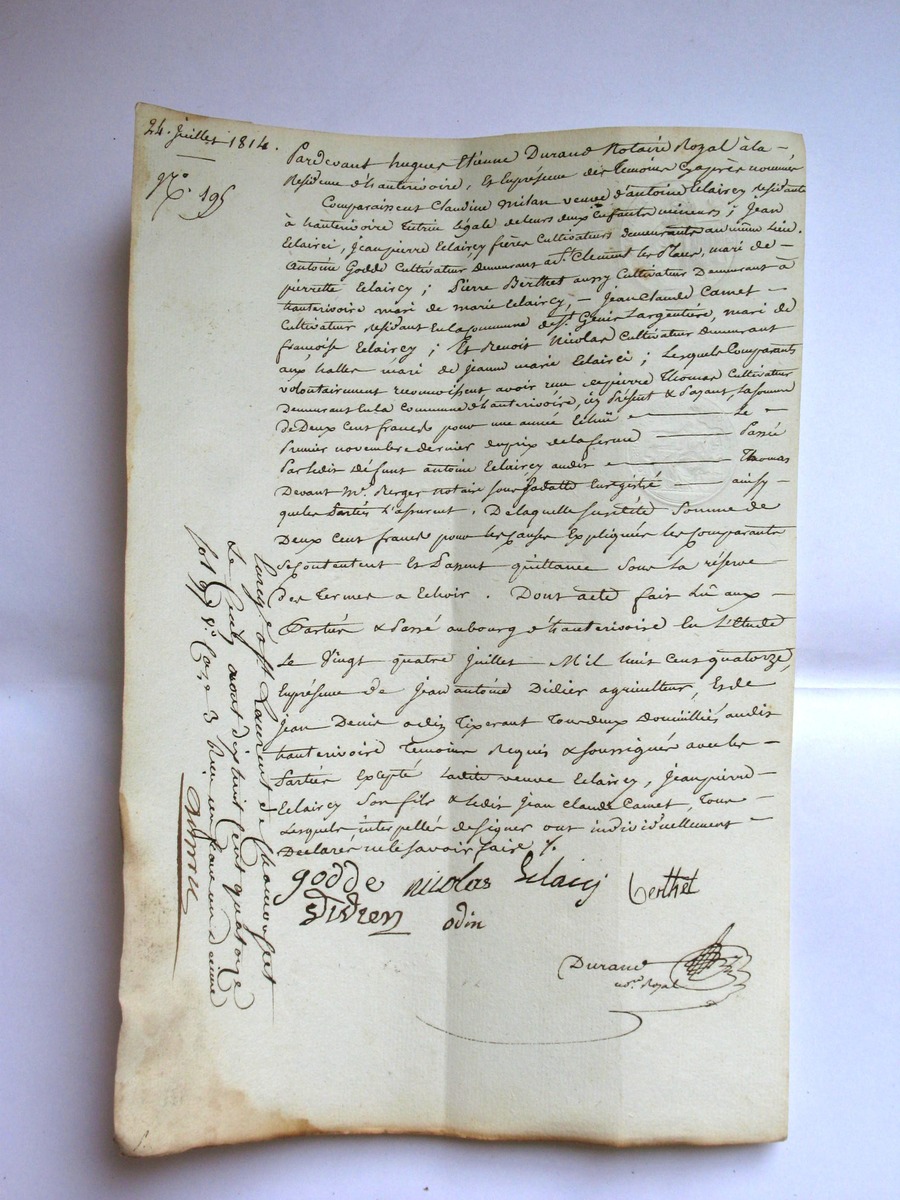 24. Juillet 1814.
N.° 195
Pardevant hugues Etienne Durand Notaire Royal à la –
Residence d'hauterivoire, Et En presence des Temoins Cy après nommés
Comparaissent Claudine Milan veuve d'antoine Eclaircy residante
à hauterivoire Tutrice légale de leurs deux Enfants mineurs ; Jean
Eclairci, Jean pierre Eclaircy frères Cultivateurs demeurants au même lieu.
Antoine Goddé Cultivateur demeurant à S.t Clement les places, mari de –
pierrette Eclaircy ; Pierre Berthet aussy Cultivateur Demeurant à
hauterivoire mari de marie Eclaircy, – Jean Claude Camet –
Cultivateur residant En la Commune de S.t Genis Largentière, mari de
françoise Eclaircy ; Et Benoit Nicolas Cultivateur demeurant
aux halles mari de jeanne marie Eclairci ; Lesquels Comparants
volontairement reconnoissent avoir reçu de pierre Thomas Cultivateur
Demeurant En la Commune d'hauterivoire, icy Présent & Payant, la somme
de Deux Cent francs pour une année Echüe — Le –
Premier novembre dernier du prix de la ferme — Passée
Par ledit Défunt antoine Eclaircy audit — Thomas
Devant M.e Berger Notaire sous sa datte Enregistré — ainsy –
que les Parties l'assurent. De laquelle susditte Somme de
Deux Cent francs pour les causes Expliquées les comparants
se Contentent Et Passent quittance sous la réserve
des Termes a Echoir. Dont acte fait Lû aux –
Parties & Passé au bourg d'hauterivoire En L'Etude
Le Vingt quatre juillet Mil huit cent quatorze,
En présence de Jean antoine Didier agriculteur, Et de
Jean Denis odin Tixerant Tous deux Domiciliés audit
hauterivoire Témoins Requis & soussignés avec les –
Parties Excepté Ladite veuve Eclaircy, Jean pierre –
Eclaircy son fils & ledit Jean Claude Camet, Tous
Lesquels interpellés de signer ont individuellement –
Declarés ne le savoir faire /.
godde nicolas Eclaicj Berthet
Didien odin
Durand
no.re Royal
Enregé a S.t Laurent de Chamousset
Le Cinq aout dix huit Cent quatorze
fol 97 v.° Case 3 Reçu un franc